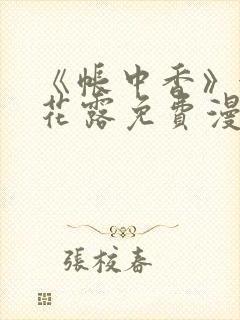 《帐中香》
花露免费漫
张校春